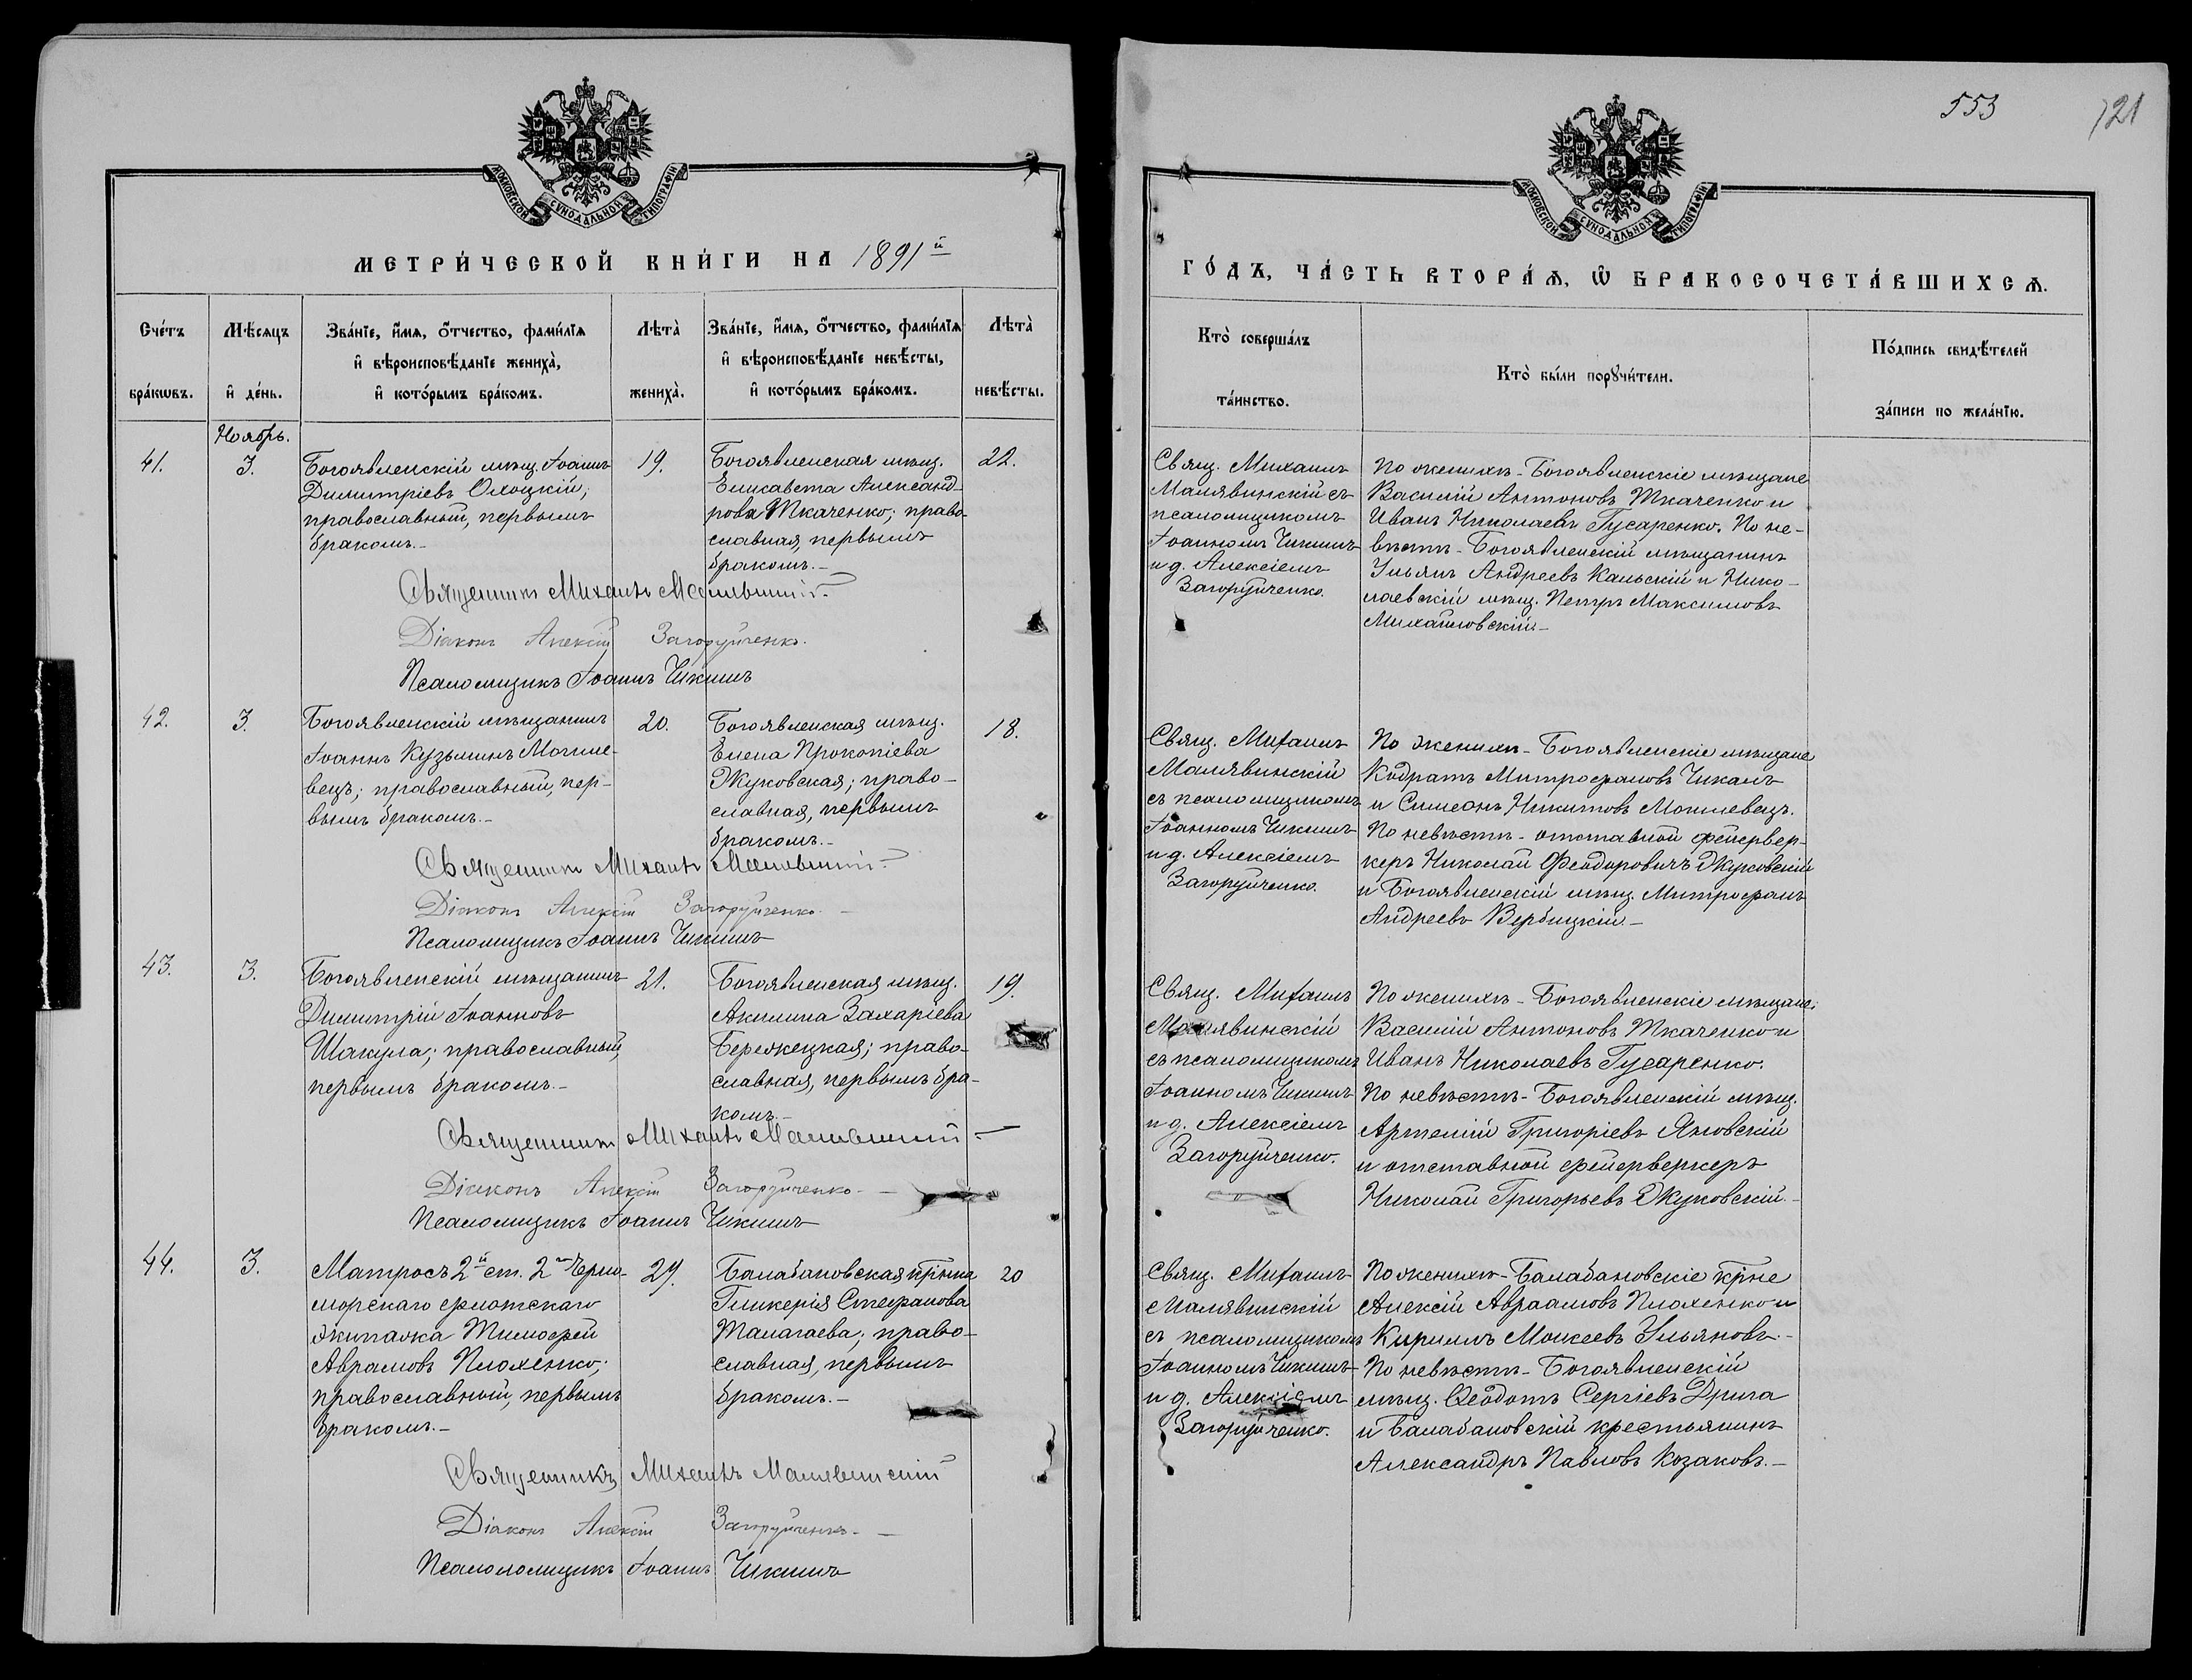 553
121
МОСКОВСКОЙ СѴНОДАЛЬНОЙ ТИПОГРАФІИ
МОСКОВСКОЙ СѴНОДАЛЬНОЙ ТИПОГРАФІИ
МЕТРИ́ЧЕСКОЙ КНИ́ГИ НА 1891й
ГО́ДЪ, ЧА́СТЬ ВТОРА́Ѧ, Ѽ БРАКОСОЧЕТА́ВШИХСѦ.
Сче́тъ бра́кѡвъ.
Мѣ́сяцъ и҆ де́нь.
Зва́нїе, и҆́мя, ѻ҆́тчество, фами́лїя и҆ вѣроисповѣ́данїе жениха̀, и҆ кото́рымъ бра́комъ.
Лѣта̀ жениха̀.
Зва́нїе, и҆́мя, ѻ҆́тчество, фами́лїя и҆ вѣроисповѣ́данїе невѣ́сты, и҆ кото́рымъ бра́комъ.
Лѣта̀ невѣ́сты.
Кто̀ соверша́лъ та́инство.
Кто̀ бы́ли порꙋчи́тели.
По́дпись свидѣ́телей за́писи по жела́нїю.
Ноябрь.
41.
3.
Богоявленскій мѣщ. Іоаннъ
Димитріевъ Охоцкій;
православный, первымъ
бракомъ.-
19.
Богоявленская мѣщ.
Елисавета Александ-
рова Ткаченко; право-
славная, первымъ
бракомъ.-
22.
Свящ. Михаилъ
Малявинскій съ
псаломщикомъ
Іоанномъ Чикинъ
и д. Алексіемъ
Загоруйченко.
По женихѣ - Богоявленскіе мѣщане
Василій Антоновъ Ткаченко и
Иванъ Николаевъ Гусаренко. По не-
вѣстѣ - Богоявленскій мѣщанинъ
Ульянъ Андреевъ Кальскій и Нико-
лаевскій мѣщ. Петръ Максимовъ
Михайловскій.-
Священникъ Михаилъ Малявинскій.
Діаконъ Алексій Загоруйченко.
Псаломщикъ Іоаннъ Чикинъ
42.
3.
Богоявленскій мѣщанинъ
Іоаннъ Кузьминъ Могиле-
вецъ; православный, пер-
вымъ бракомъ.-
20.
Богоявленская мѣщ.
Елена Прокопіева
Жуковская; право-
славная, первымъ
бракомъ.-
18.
Свящ. Михаилъ
Малявинскій
съ псаломщикомъ
Іоанномъ Чикинъ
и д. Алексіемъ
Загоруйченко.
По женихѣ - Богоявленскіе мѣщане
Кодратъ Митрофановъ
и Симеонъ Никитовъ Могилевецъ.
По невѣстѣ - отставной фейервер-
керъ Николай Ѳеодоровичъ Жуковскій
и Богоявленскій мѣщ. Митрофанъ
Андреевъ Вербицкій.-
Священникъ Михаилъ Малявинскій.
Діаконъ Алексій Загоруйченко.-
Псаломщикъ Іоаннъ Чикинъ
43.
3.
Богоявленскій мѣщанинъ
Димитрій Іоанновъ
Шакула; православный,
первымъ бракомъ.-
21.
Богоявленская мѣщ.
Акилина Захаріева
Бережецкая; право-
славная, первымъ бра-
комъ.-
19.
Свящ. Михаилъ
Малявинскій
съ псаломщикомъ
Іоанномъ Чикинъ
и д. Алексіемъ
Загоруйченко.
По женихѣ - Богоявленскіе мѣщане:
Василій Антоновъ Ткаченко и
Иванъ Николаевъ Гусаренко.
По невѣстѣ - Богоявленскій мѣщ.
Артемій Григоріевъ Яновскій
и отставной фейерверкеръ
Николай Григорьевъ Жуковскій.-
Священникъ Михаилъ Малявинскій-
Діаконъ Алексій Загоруйченко.-
Псаломщикъ Іоаннъ Чикинъ
44.
3.
Матросъ 2й ст. 2го Черно-
морскаго флотскаго
экипажа Тимофей
Аврамовъ Плохенко;
православный, первымъ
бракомъ.-
27.
Балабановская крнка
Гликерія Стефанова
Талагаева; право-
славная, первымъ
бракомъ.-
20
Свящ. Михаилъ
Малявинскій
съ псаломщикомъ
Іоанномъ Чикинъ
и д. Алексіемъ
Загоруйченко.
По женихѣ - Балабановскіе крне
Алексій Авраамовъ Плохенко и
Кириллъ Моисеевъ Ульяновъ.-
По невѣстѣ - Богоявленскій
мѣщ. Ѳеодотъ Сергіевъ Дрига
и Балабановскій крестьянинъ
Александръ Павловъ Козаковъ.-
Священникъ Михаилъ Малявинскій
Діаконъ Алексій Загоруйченко.-
Псаломщикъ Іоаннъ Чикинъ